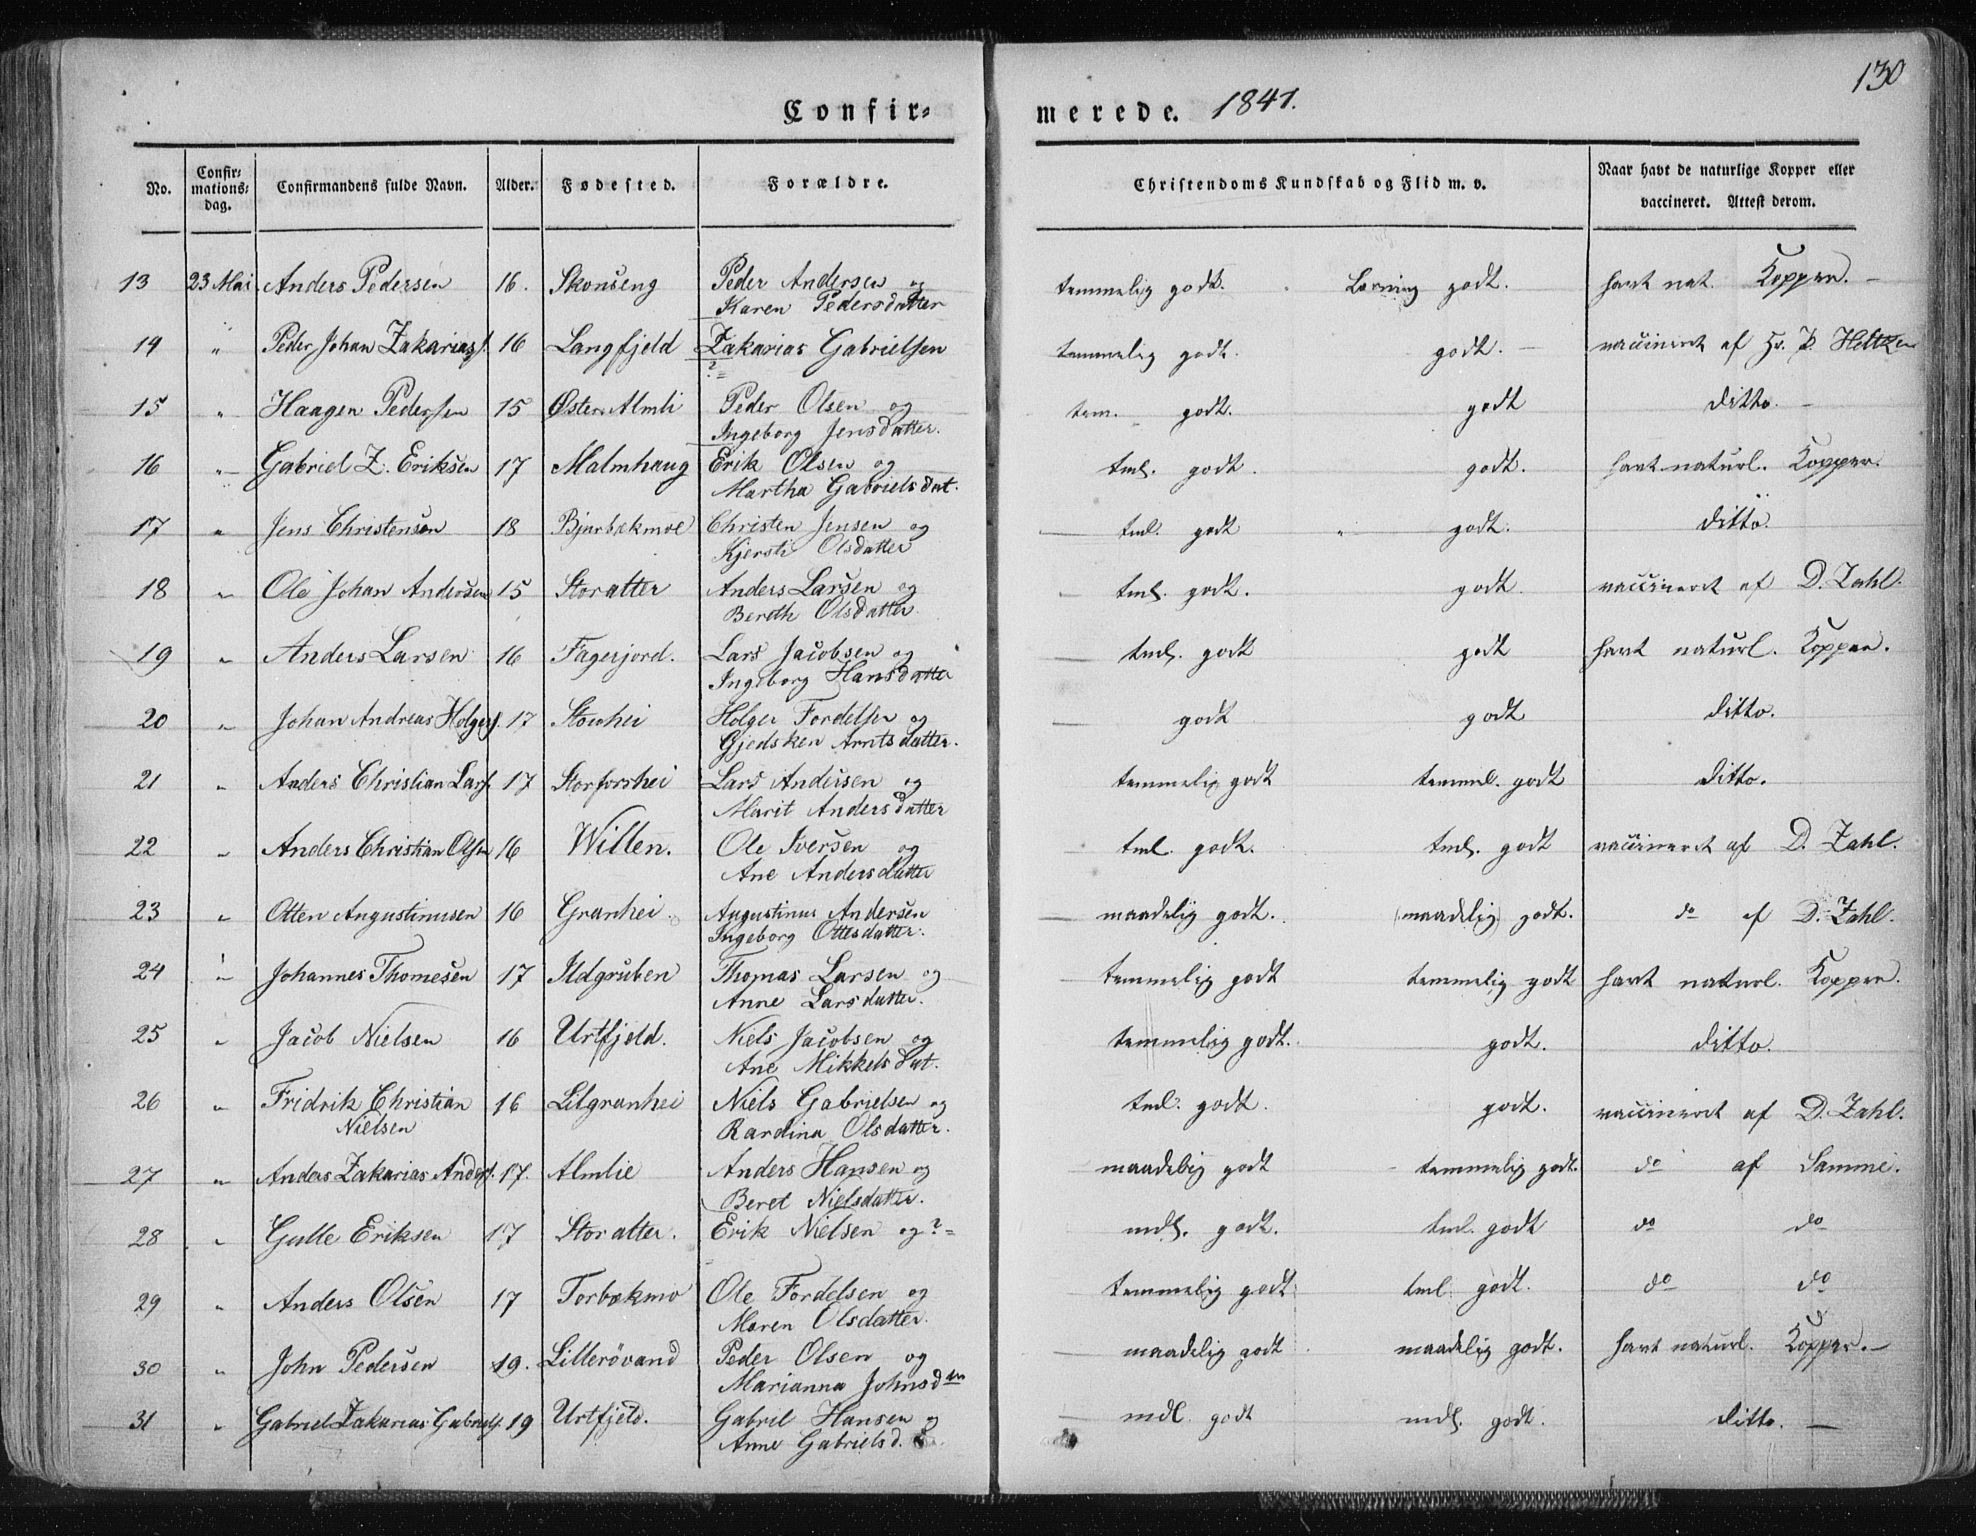 130
Confir= merede. 1841.
No. Confir=mations=dag. Confirmandens fulde Navn. Alder. Fødested. Forældre. Christendoms Kundskab og Flid m. v. Naar havt de naturlige Kopper eller vaccineret. Attest derom.
13 23 Mai Anders Pedersen 16. Skonseng Peder Andersen og temmelig godt. Lærning godt. havt nat. Kopper. —
Karen Pedersdatter
14 " Peder Johan Zakarias. 16 Langfjeld Zakarias Gabrielsen temmelig godt. godt. — vaccineret af Hr. P. Heltzen
?=
15 " Haagen Pedersen 15 Øster Almli Peder Olsen og tem. godt. godt ditto. —
Ingeborg Jensdatter.
16 " Gabriel Z. Eriksen 17 Malmhaug Erik Olsen og tml. godt. godt. havt naturl. Kopper.
Martha Gabrielsdat.
17 " Jens Christensen 18 Bjurbækmoe Christen Jensen og tml. godt " godt. ditto.
Kjersti Olsdatter
18 " Ole Johan Andersen 15 Storatter Anders Larsen og tml. godt. godt. vaccineret af D. Zahl.
Bereth Olsdatter
19 " Anders Larsen 16 Fagerjord. Lars Jacobsen og tml. godt godt havt naturl. Kopper.
Ingeborg Hansdatter
20 " Johan Andreas Holgers. 17 Storhei Holger Fordelsen og godt godt ditto.
Gjedsken Arntsdatter.
21 " Anders Christian Lars. 17 Storforshei Lars Andersen og temmelig godt temmel. godt ditto.
Marit Andersdatter
22 " Anders Christian Olsen 16 Willen. Ole Iversen og tml. godt. tml. godt vaccineret af D. Zahl.
Ane Andersdatter
23 " Otten Augustinusen 16 Granhei. Augustinus Andersen maadelig godt. (maadelig) godt. do af D. Zahl.
Ingeborg Ottesdatter.
24 " Johannes Thomesen 17 Ildgruben Thomas Larsen og temmelig godt temmelig godt havt naturl. Kopper.
Anne Larsdatter.
25 " Jacob Nielsen 16 Urtfjeld. Niels Jacobsen og temmelig godt. godt. ditto.
Ane Mikkelsdat.
26 " Fridrik Christian 16 Lilgranhei Niels Gabrielsen og tml. godt. godt. vaccineret af D. Zahl.
Nielsen Kardina Olsdatter.
27 " Anders Zakarias Anders. 17. Almlie Anders Hansen og maadelig godt temmelig godt. do af Samme.
Beret Nielsdatter.
28 " Gulle Eriksen 17 Storatter. Erik Nielsen og ?= mdl. godt. tml. godt do do
29 " Anders Olsen 17 Torbækmo Ole Fordelsen og temmelig godt. tml. godt. do do
Maren Olsdatter.
30 " John Pedersen 19. Lillerövand Peder Olsen og maadelig godt maadelig godt. havt naturl. Kopper. —
Marianna Johnsdtr
31 " Gabriel Zakarias Gabriels. 19 Urtfjeld. Gabril Hansen og mdl. godt mdl. godt. ditto. —
Anne Gabrielsd.